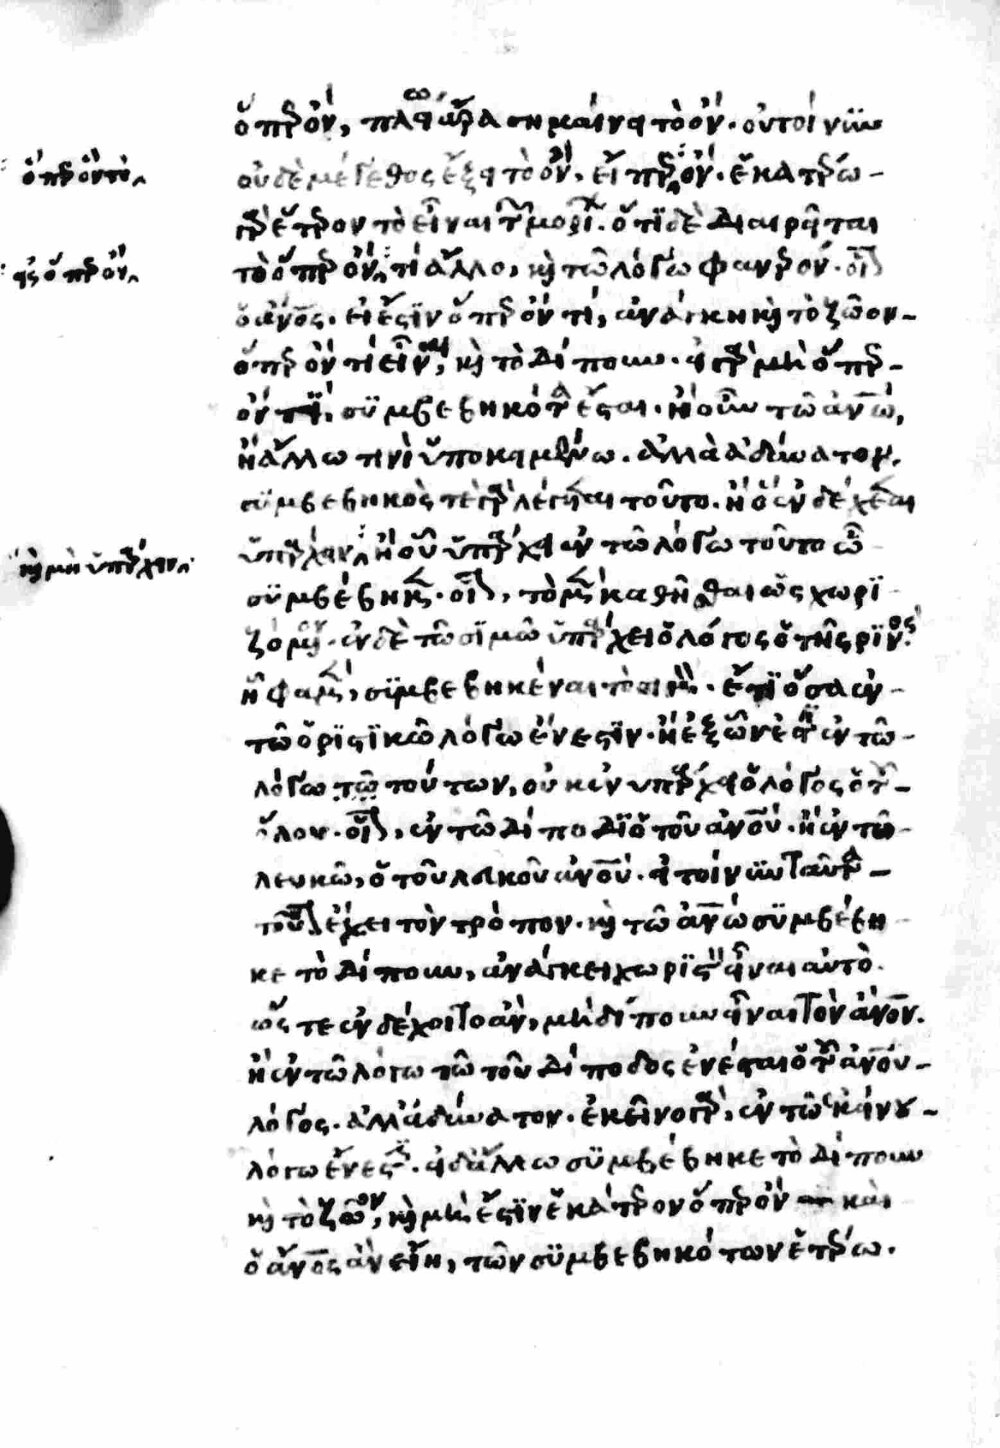 ὅπερ ὄν, πλείω ἄρα σημαίνει τὸ ὄν. οὐ τοίνυν
οὐδὲ μέγεθος ἕξει τὸ ὄν, εἴπερ ὄν. ἑκατέρω
ὅπερ ὄν τὸ
γὰρ ἕτερον τὸ εἶναι τῶν μορίων. ὅτι δὲ διαιρεῖται
τὸ ὅπερ ὄν, τι ἄλλο, καὶ τῷ λόγω φανερόν. οἷον
εἰς ὅπερ ὄν
ὁ ἄνθρωπος. εἰ ἔστιν ὅπερ ὄν τί, ἀνάγκη καὶ τὸ ζῶον
ὅπερ ὄν τί εἶναι, καὶ τὸ δίπουν. εἰ γὰρ μὴ ὅπερ
ὄν τί, συμβεβηκότα ἔσται. ἢ οὖν τῶ ἀνθρώπω,
ἢ ἄλλω τινὶ ὑποκειμένω. ἀλλὰ ἀδύνατον.
συμβεβηκὸς τε γὰρ λέγεται τοῦτο. ἢ ὃ ἐνδέχεται
ὑπάρχειν, ἢ οὗ ὑπάρχει ἐν τῶ λόγω τοῦτο ὧ
καὶ μὴ ὑπάρχειν
συμβέβηκεν. οἷον, τὸ μὲν καθῆσθαι ὡς χωρι
ζόμενον. ἐν δὲ τῶ σιμῶ ὑπάρχει ὁ λόγος ὁ τῆς ρινός.
ἧ φαμὲν, συμβεβηκέναι τὸ σιμόν. ἔτι ὅσα ἐν
τῶ ὁριστικῶ λόγω ἔνεστιν. ἢ ἐξ ὧν ἐστιν ἐν τῶ
λόγω τῶ τούτων, οὐκ ἐνυπάρχει ὁ λόγος ὁ τοῦ
ὅλου. οἷον, ἐν τῶ δίποδι ὁ τοῦ ἀνθρώπου. ἢ ἐν τῶ
λευκῶ, ὁ τοῦ λευκοῦ ἀνθρώπου. εἰ τοίνυν ταῦτα
τοῦτον ἔχει τὸν τρόπον. καὶ τῶ ἀνθρώπω συμβέβη
κε τὸ δίπουν, ἀνάγκει χωριστὸν εἶναι αὐτὸ.
ὥστε ἐνδέχοιτο ἂν, μὴ δίπουν εἶναι τὸν ἄνθρωπον.
ἢ ἐν τῶ λόγω τῶ τοῦ δίποδος ἐνέσται ὁ τοῦ ἀνθρώπου
λόγος. ἀλλ' ἀδύνατον. ἐκεῖνο γὰρ, ἐν τῶ ἐκείνου
λόγω ἔνεστιν. εἰ δ' ἄλλω συμβέβηκε τὸ δίπουν
καὶ τὸ ζῶον, καὶ μὴ ἔστιν ἑκάτερον ὅπερ ὄν καὶ
ὁ ἄνθρωπος ἂν εἴη, τῶν συμβεβηκότων ἑτέρω.